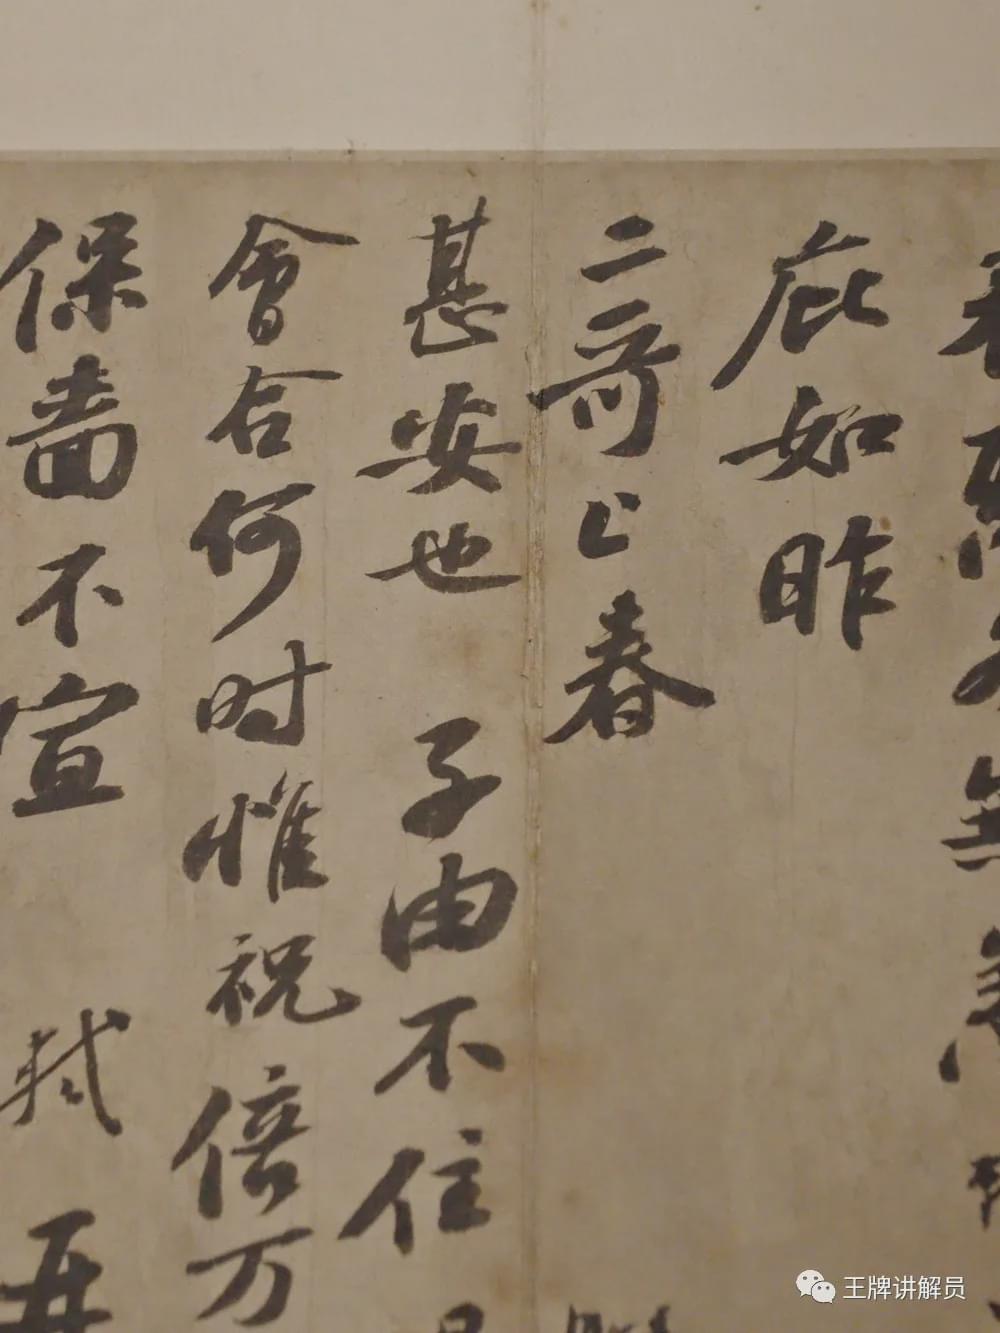 庇如昨
二哥上春
甚安也 子由不住
會合何时惟祝倍万
保嗇不宣 軾 再
王牌讲解员